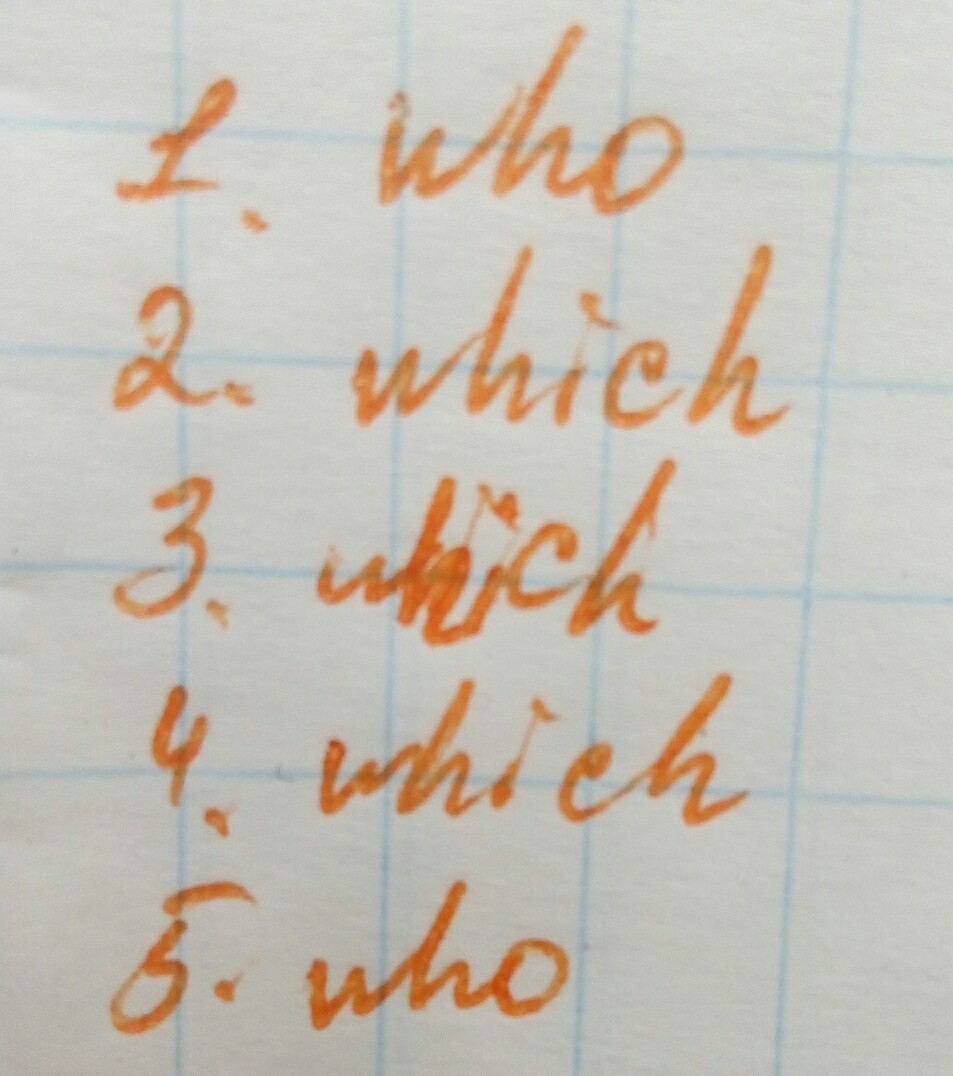 1. who
2. which
3. which
4. which
5. who